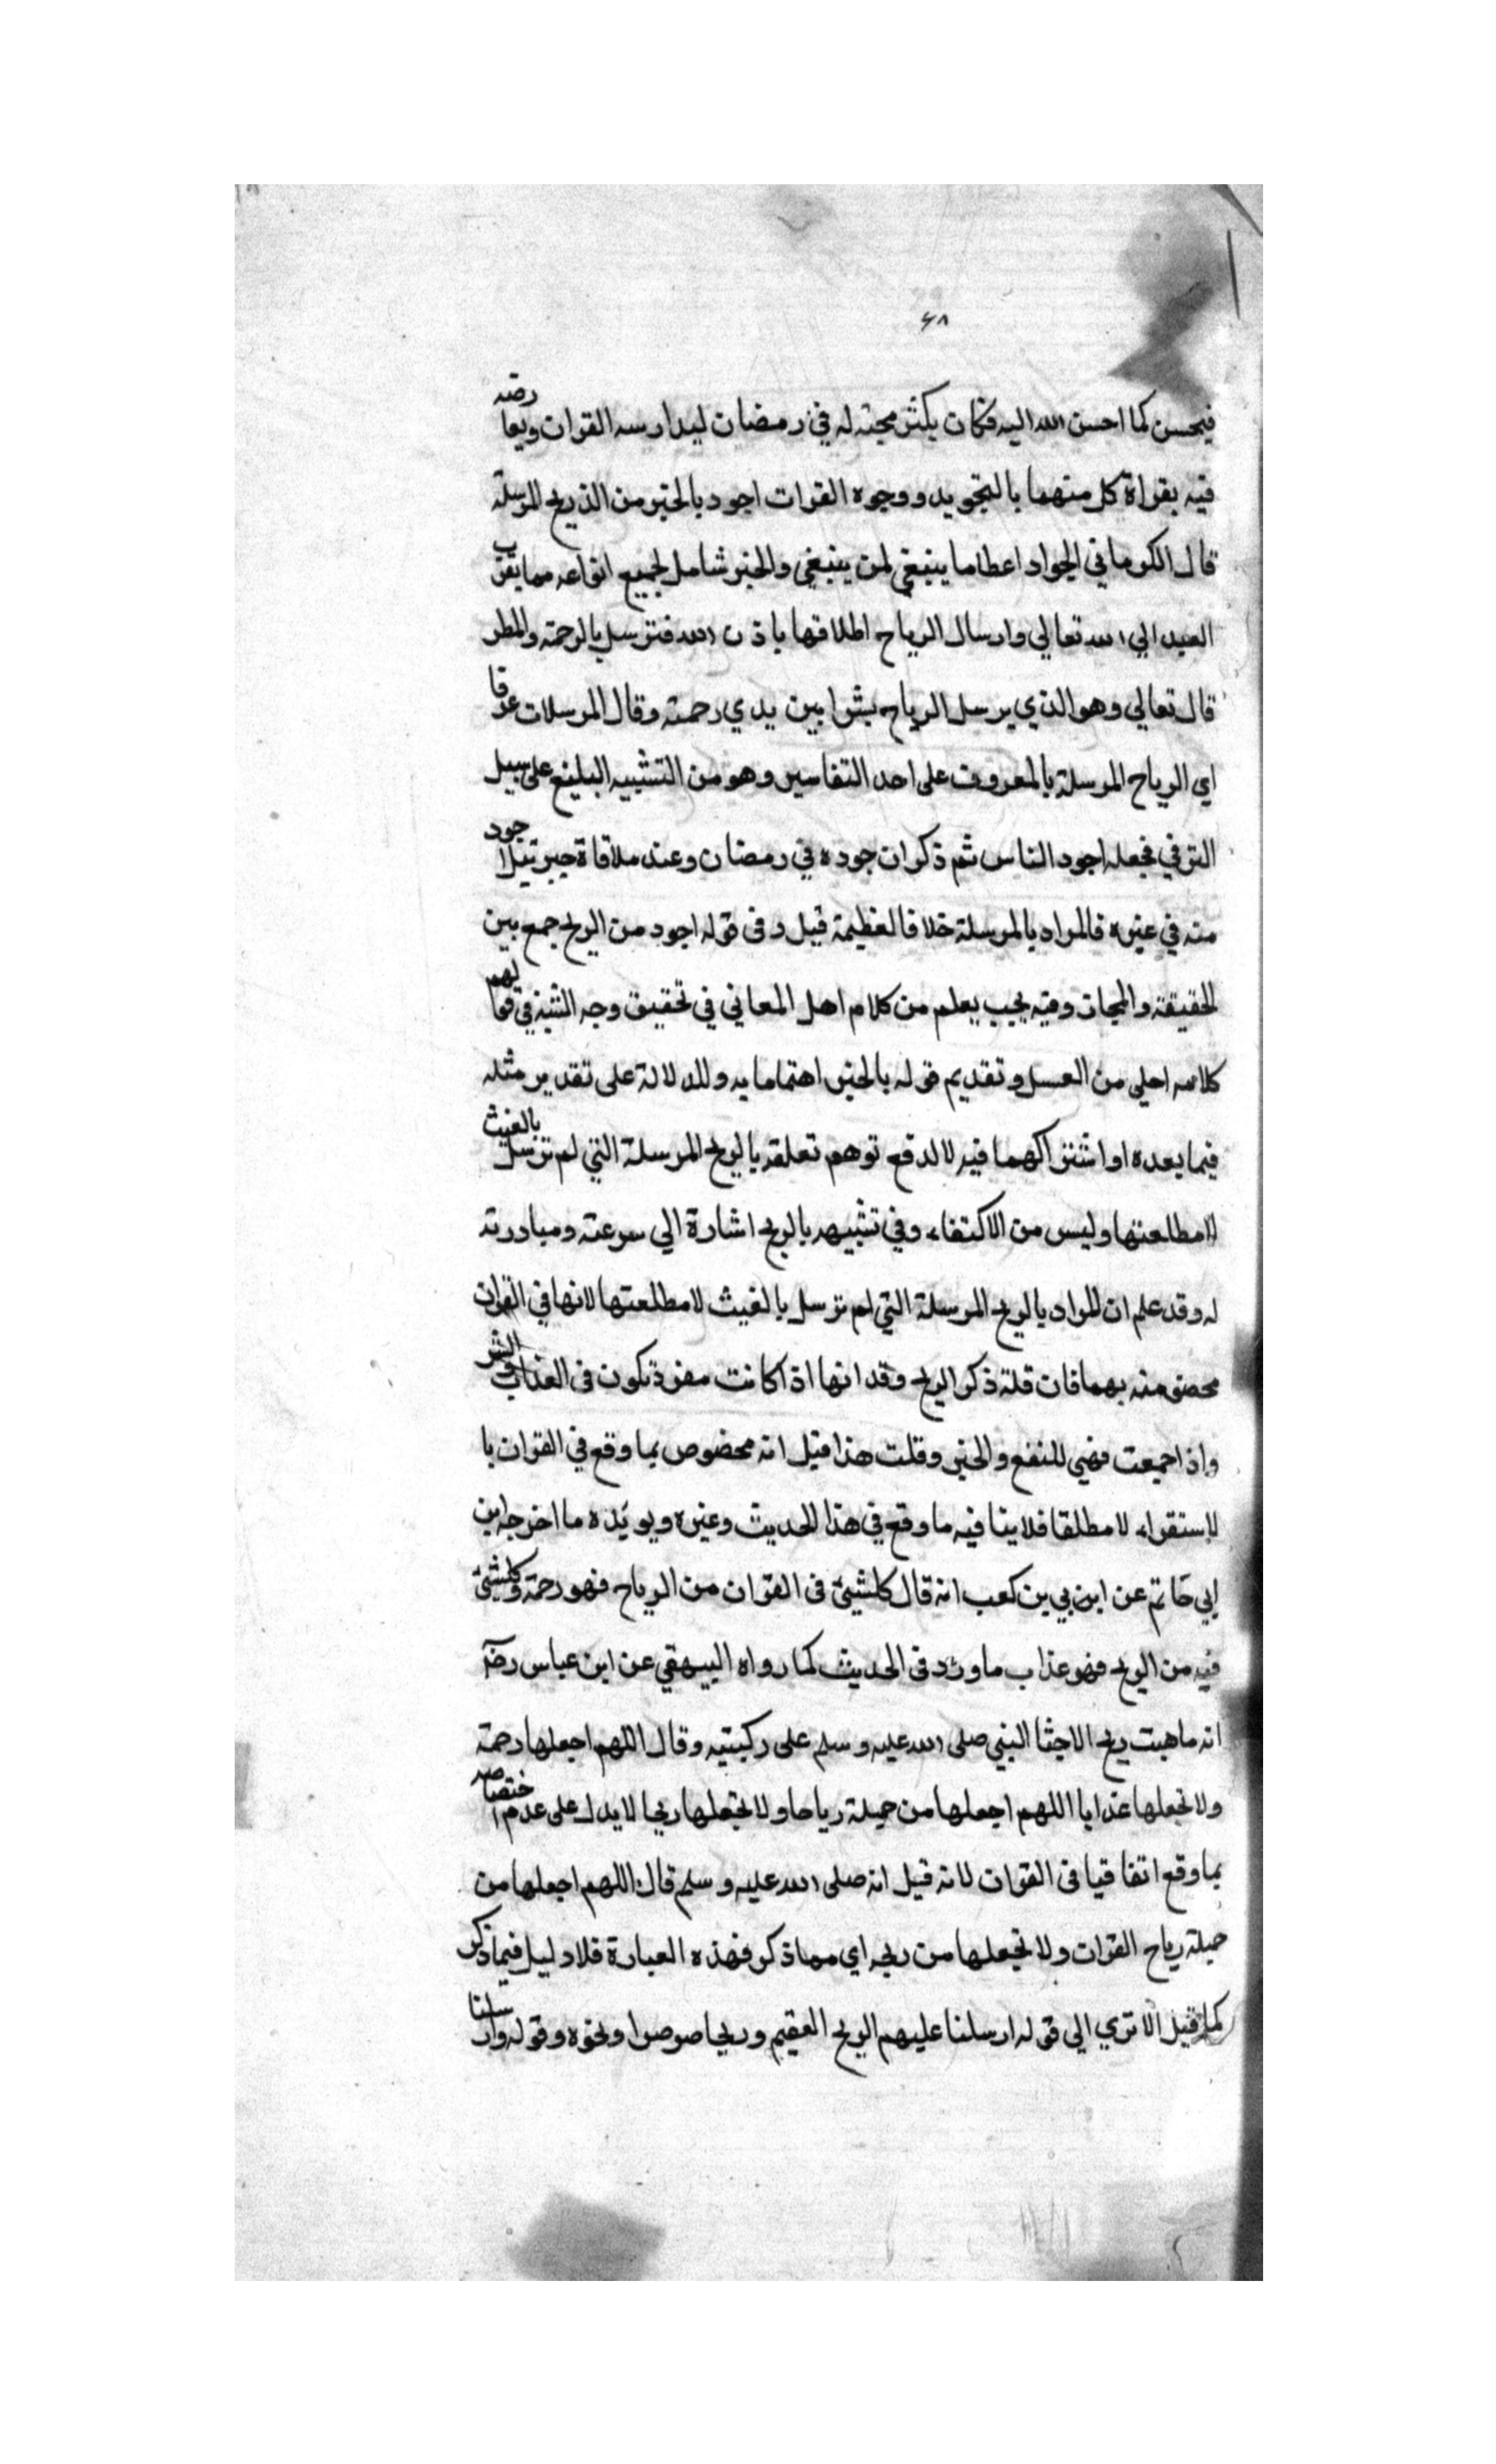 ٤٨
فيحسن كما احسن الله اليه فكان يكثر مجيئه له في رمضان ليدارسه القران ويعارضه
فيه بقراة كل منهما بالتجويد ووجوه القرات اجود بالخير من الذريح المرسلة
قال الكرماني الجواد اعطا ما ينبغي لمن ينبغي والخير شامل لجميع انواعه مما يقرب
العبد الي الله تعالي وارسال الرياح اطلاقها باذن الله فترسل بالرحمة والمطر
قال تعالي وهو الذي يرسل الرياح بشرا بين يدي رحمته وقال المرسلات عرفا
اي الرياح المرسلة بالمعروف على احد التفاسير وهو من التشبيه البليغ على سبيل
الترقي فجعله اجود الناس ثم ذكر ان جوده في رمضان وعند ملاقاة جبرئيل اجود
منه في غيره فالمراد بالمرسلة خلاف العظيمة قيل وفي قوله اجود من الريح جمع بين
الحقيقة والمجاز وفيه يجيب يعلم من كلام اهل المعاني في تحقيق وجه الشبه في قولهم
كلامه احلي من العسل وتقديم قوله بالخير اهتماما به وللدلالة على تقدير مثله
فيما بعده او اشتراكهما فيه لا لدفع توهم تعلقه بالريح المرسلة التي لم ترسل بالغيث
لا مطلعتها وليس من الاكتفاء وفي تشبيهه بالريح اشارة الي سرعته ومبادرته
له وقد علم ان المراد بالريح المرسلة التي لم ترسل بالغيث لا مطلعتها لانها في القران
منه بهما فان قلة ذكر الريح وقد انها اذا كانت مفردة تكون في العذاب والشر
واذا جمعت فهي للنفع والخير وقلت هذا قيل انه مخصوص بما وقع في القران با
لاستقراء لا مطلقا فلا ينا فيه ما وقع في هذا الحديث وغيره ويويده ما اخرجه ابن
ابي حاتم عن ابن بي بن كعب انه قال كلشيئ في القران من الرياح فهو رحمة وكلشيئ
فيه من الريح فهو عذاب ما ورد في الحديث كما رواه البيهقي عن ابن عباس رضه
انه ما هبت ريح الا جثا النبي صلى الله عليه وسلم على ركبتيه وقال اللهم اجعلها رحمة
ولا تجعلها عذابا اللهم اجعلها من جملة رياحا ولا تجعلها ريحا لا يدل على عدم اختصاصه
بما وقع اتفاقيا في القران لانه قيل انه صلى الله عليه وسلم قال اللهم اجعلها من
جملة رياح القران ولا تجعلها من ريحه اي مما ذكر فهذه العبارة فلا دليل فيما ذكر
كما قيل الا تري الي قوله ارسلنا عليهم الريح العقيم وريحا صرصرا ونحوه وقوله وارسلنا